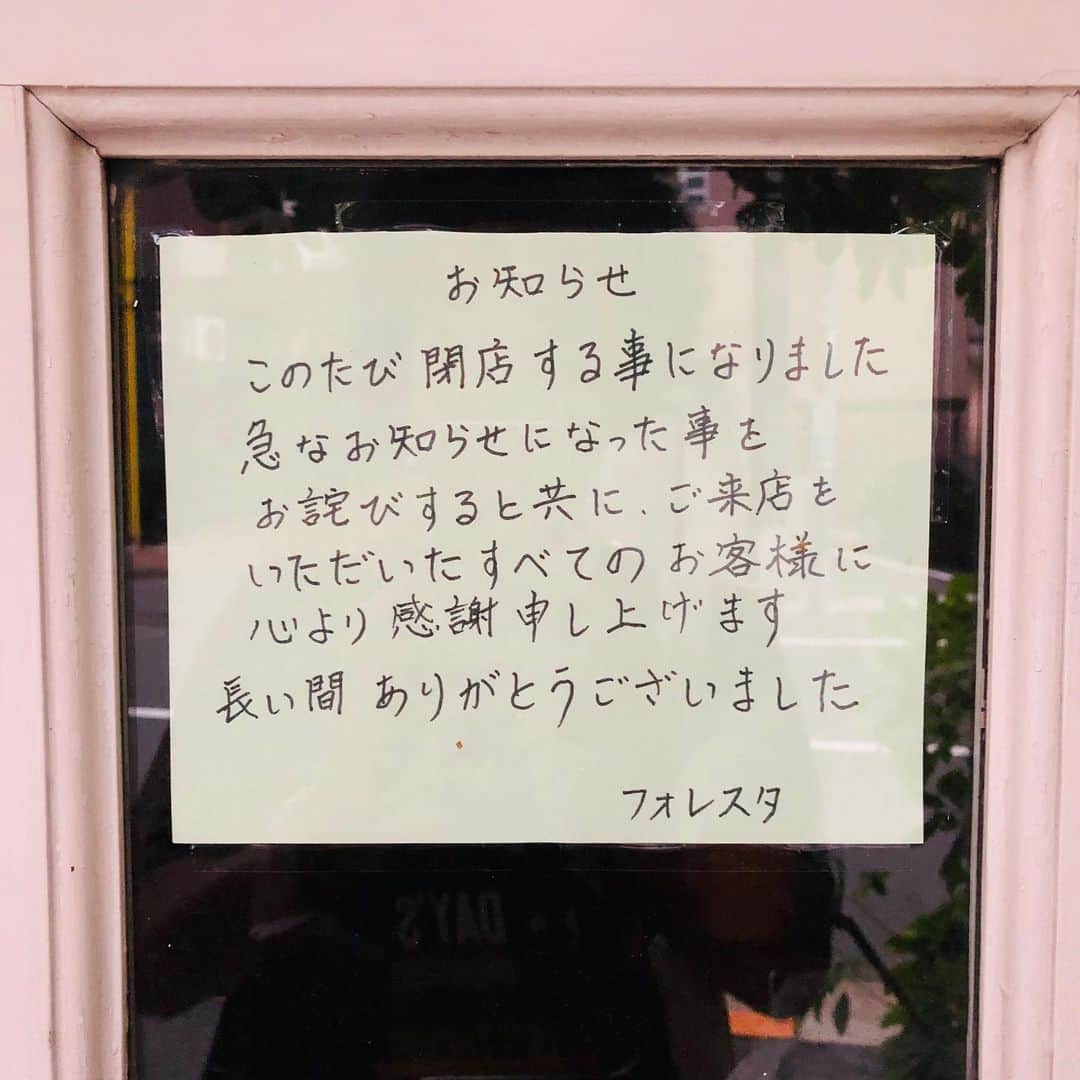 お知らせ
このたび 閉店する事になりました
急なお知らせになった事を
お詫びすると共に、ご来店を
いただいたすべてのお客様に
心より感謝申し上げます
長い間 ありがとうございました
フォレスタ
DAY'S